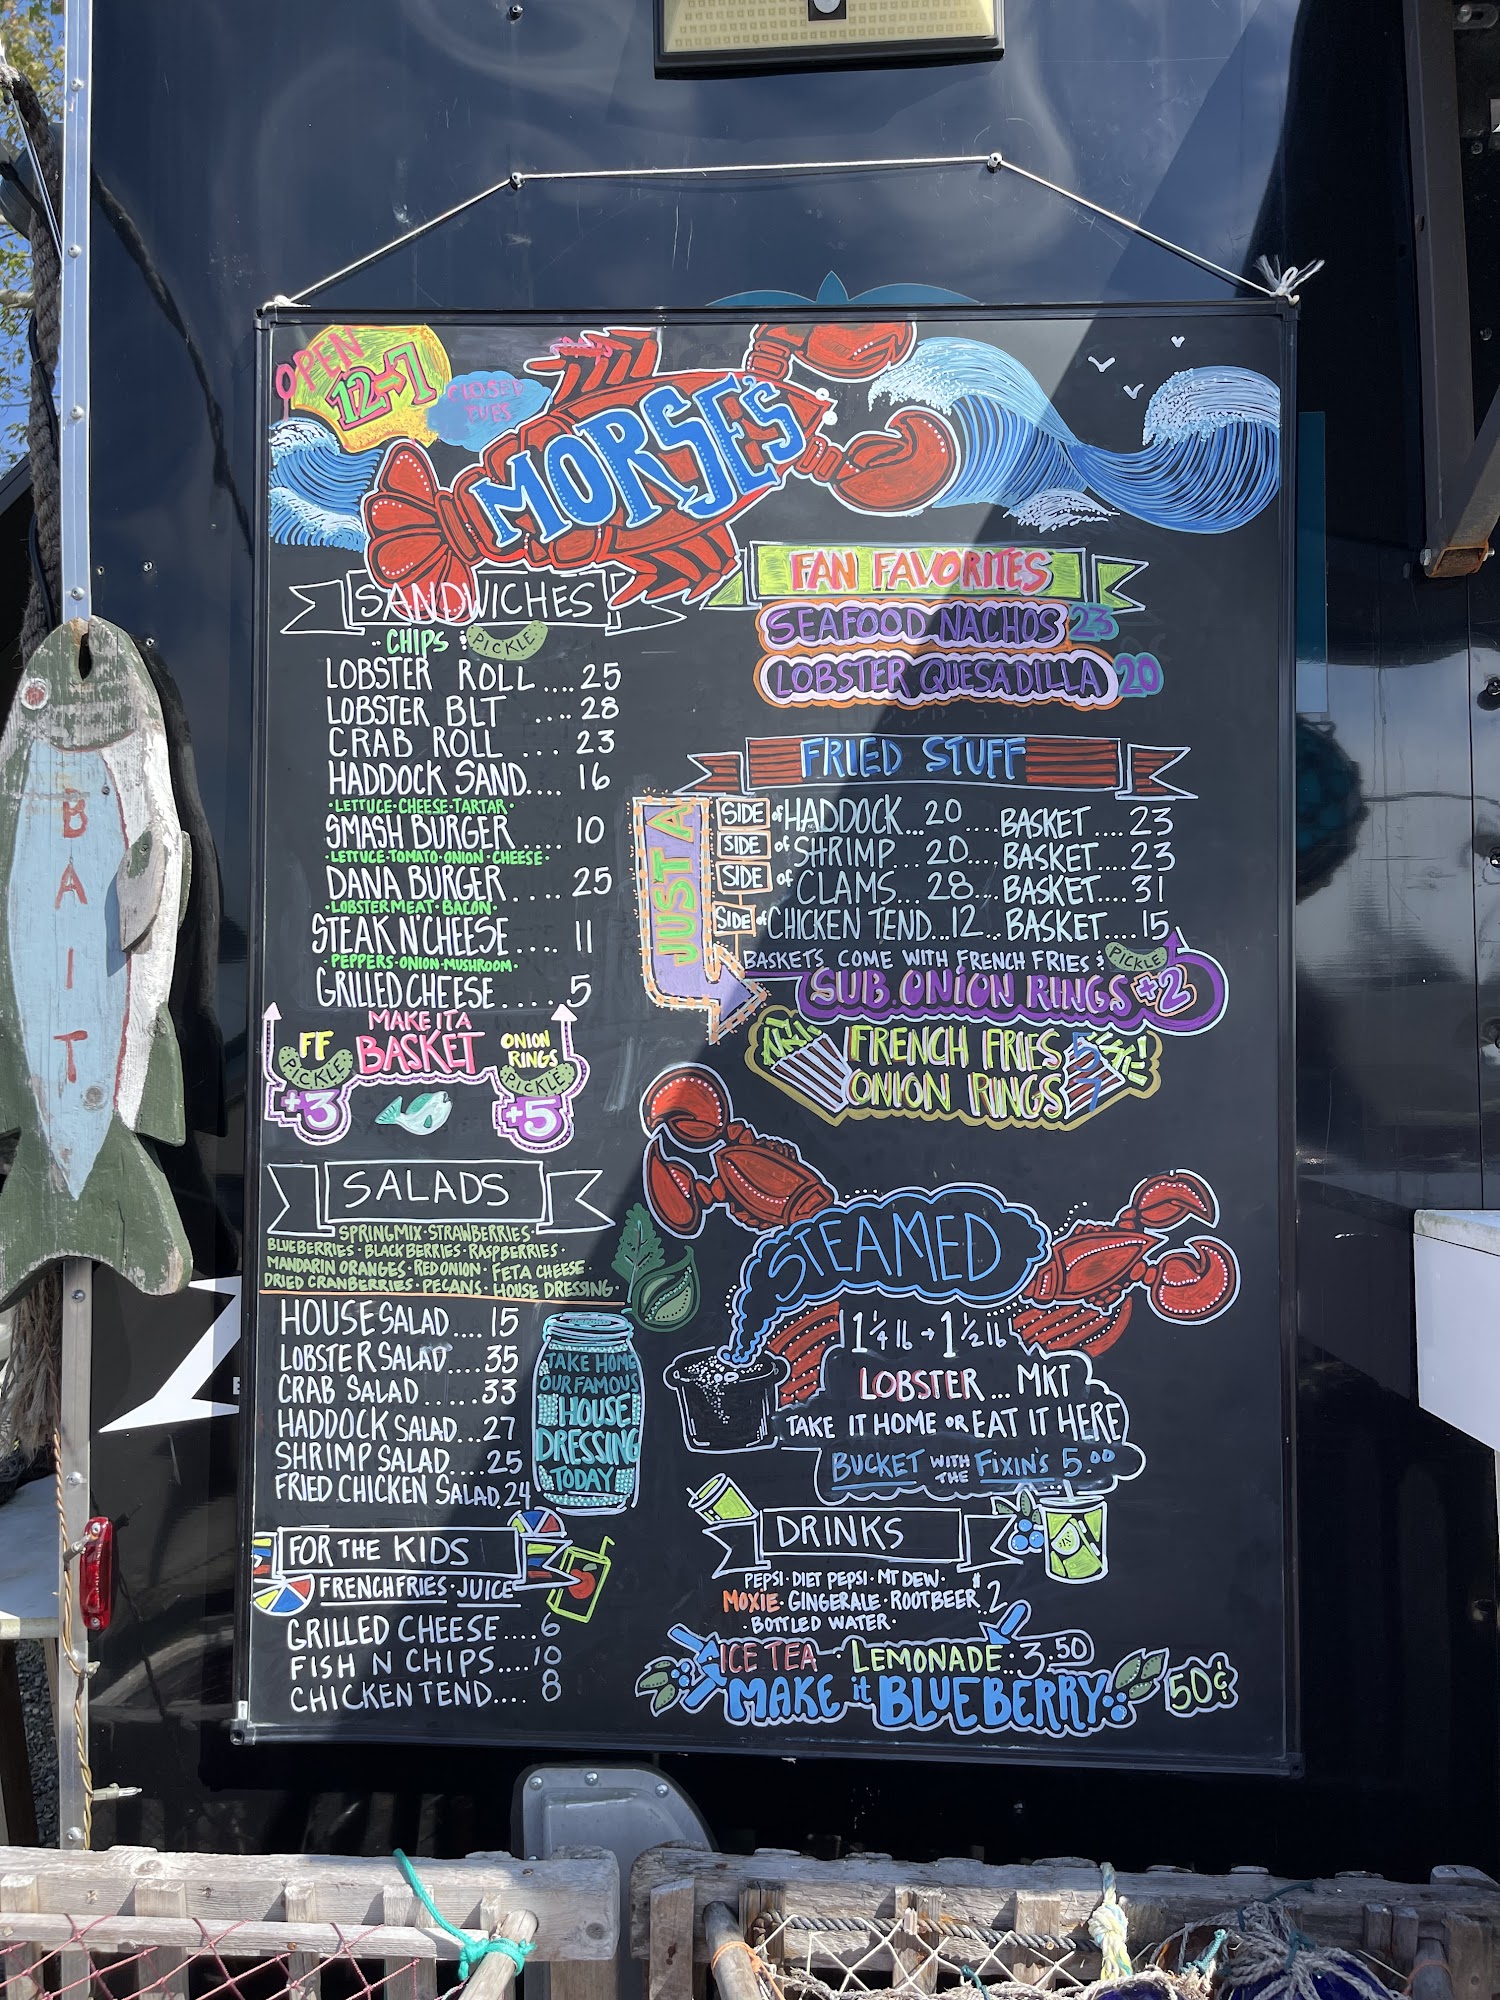 OPEN
12→7
CLOSED
TUES
MORSE'S
SANDWICHES
CHIPS & PICKLE
LOBSTER ROLL .... 25
LOBSTER BLT .... 28
CRAB ROLL ... 23
HADDOCK SAND.... 16
·LETTUCE·CHEESE·TARTAR·
SMASH BURGER.... 10
·LETTUCE·TOMATO·ONION·CHEESE·
DANA BURGER.... 25
·LOBSTER MEAT·BACON·
STEAK N CHEESE.... 11
·PEPPERS·ONION·MUSHROOM·
GRILLED CHEESE.... 5
MAKE IT A
BASKET
FF
PICKLE
+3
ONION
RINGS
PICKLE
+5
SALADS
SPRING MIX·STRAWBERRIES·
BLUEBERRIES·BLACKBERRIES·RASPBERRIES·
MANDARIN ORANGES·RED ONION·FETA CHEESE·
DRIED CRANBERRIES·PECANS·HOUSE DRESSING·
HOUSE SALAD.... 15
LOBSTER SALAD.... 35
CRAB SALAD...... 33
HADDOCK SALAD... 27
SHRIMP SALAD.... 25
FRIED CHICKEN SALAD. 24
TAKE HOME
OUR FAMOUS
HOUSE
DRESSING
TODAY
FOR THE KIDS
FRENCH FRIES·JUICE
GRILLED CHEESE.... 6
FISH N CHIPS.... 10
CHICKEN TEND.... 8
FAN FAVORITES
SEAFOOD NACHOS 23
LOBSTER QUESADILLA 20
FRIED STUFF
JUST A
SIDE of HADDOCK... 20 .... BASKET .... 23
SIDE of SHRIMP... 20.... BASKET.... 23
SIDE of CLAMS... 28.... BASKET.... 31
SIDE of CHICKEN TEND... 12.. BASKET.... 15
BASKETS COME WITH FRENCH FRIES & PICKLE
SUB ONION RINGS +2
FRENCH FRIES 5
ONION RINGS 7
STEAMED
1 1/4 lb → 1 1/2 lb
LOBSTER ... MKT
TAKE IT HOME OR EAT IT HERE
BUCKET WITH THE FIXIN'S 5.00
DRINKS
PEPSI·DIET PEPSI·MT DEW·
MOXIE·GINGERALE·ROOTBEER $2
·BOTTLED WATER·
ICE TEA - LEMONADE... 3.50
MAKE it BLUEBERRY 50¢
BAIT